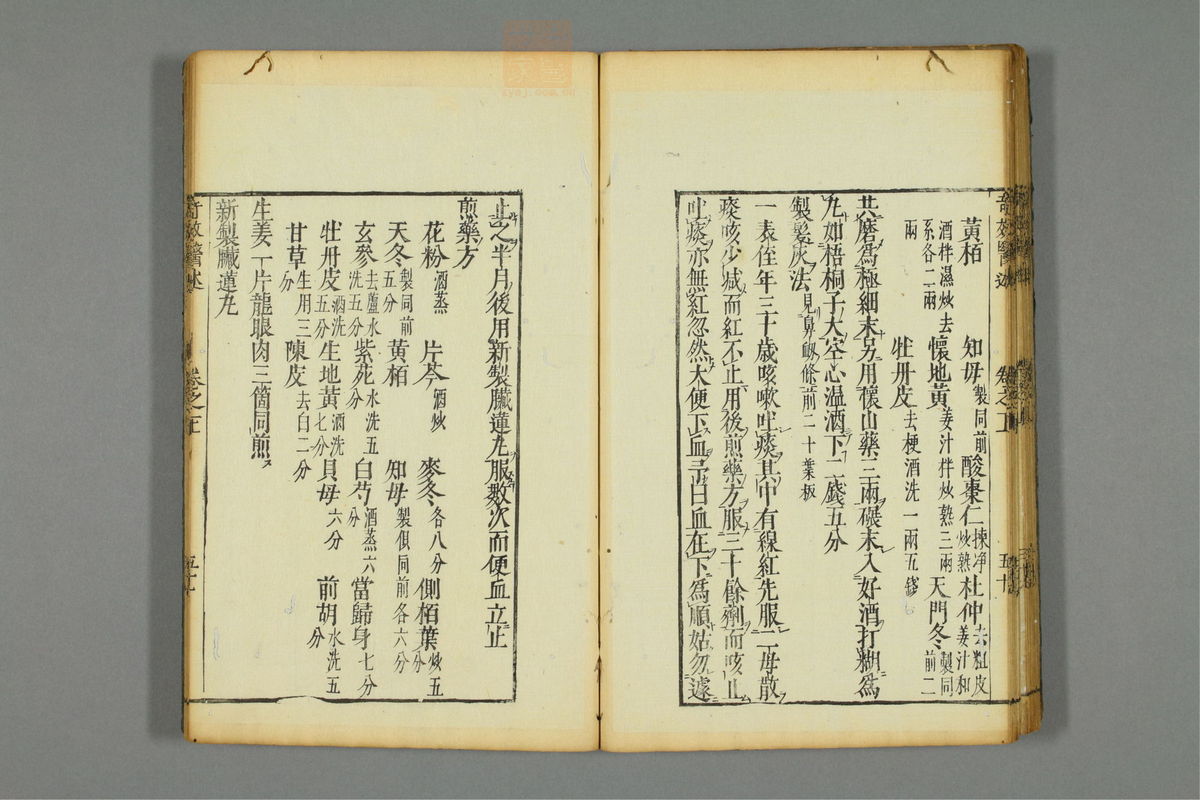 奇效醫述 卷之 五十
黃栢 酒拌濕炒去 知母 製同前 酸棗仁 揀净炒熟 杜仲 去粗皮姜汁和
系各二兩 懷地黃 姜汁拌炒熟三兩 天門冬 製同前二
兩 牡丹皮 去梗酒洗一兩五錢
共磨爲極細末另用懷山藥三兩碾末入好酒打糊爲
丸如梧桐子大空心温酒下二錢五分
製髮灰法 見鼻衂條前二十葉板
一表侄年三十歲咳嗽吐痰其中有線紅先服二母散
痰咳少减而紅不止用後煎藥方服三十餘劑而咳止
吐痰亦無紅忽然大便下血予曰血在下爲順姑勿遽
止之半月後用新製臟蓮丸服數次而便血立止
煎藥方
花粉 酒蒸 片芩 酒炒 麥冬 各八分 側栢葉 炒五分
天冬 製同前五分 黃栢 知母 製俱同前各六分
玄參 去蘆水洗五分 紫苑 水洗五分 白芍 酒蒸六分 當歸身 七分
牡丹皮 酒洗五分 生地黃 酒洗七分 貝母 六分 前胡 水洗五分
甘草 生用三分 陳皮 去白二分
生姜一片龍眼肉三箇同煎
新製臟蓮丸
奇效醫述 卷之 五十